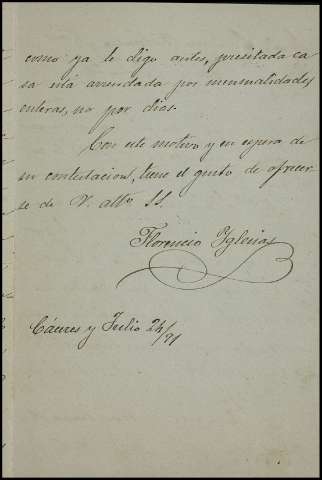 como ya le digo antes, precitada ca
sa está arrendada por mensualidades
enteras, no por días.
Con este motivo y en espera de
su contestacion, tiene el gusto de ofrecer
se de V. attº SS.
Florencio Yglesias
Cáceres y Julio 24/91